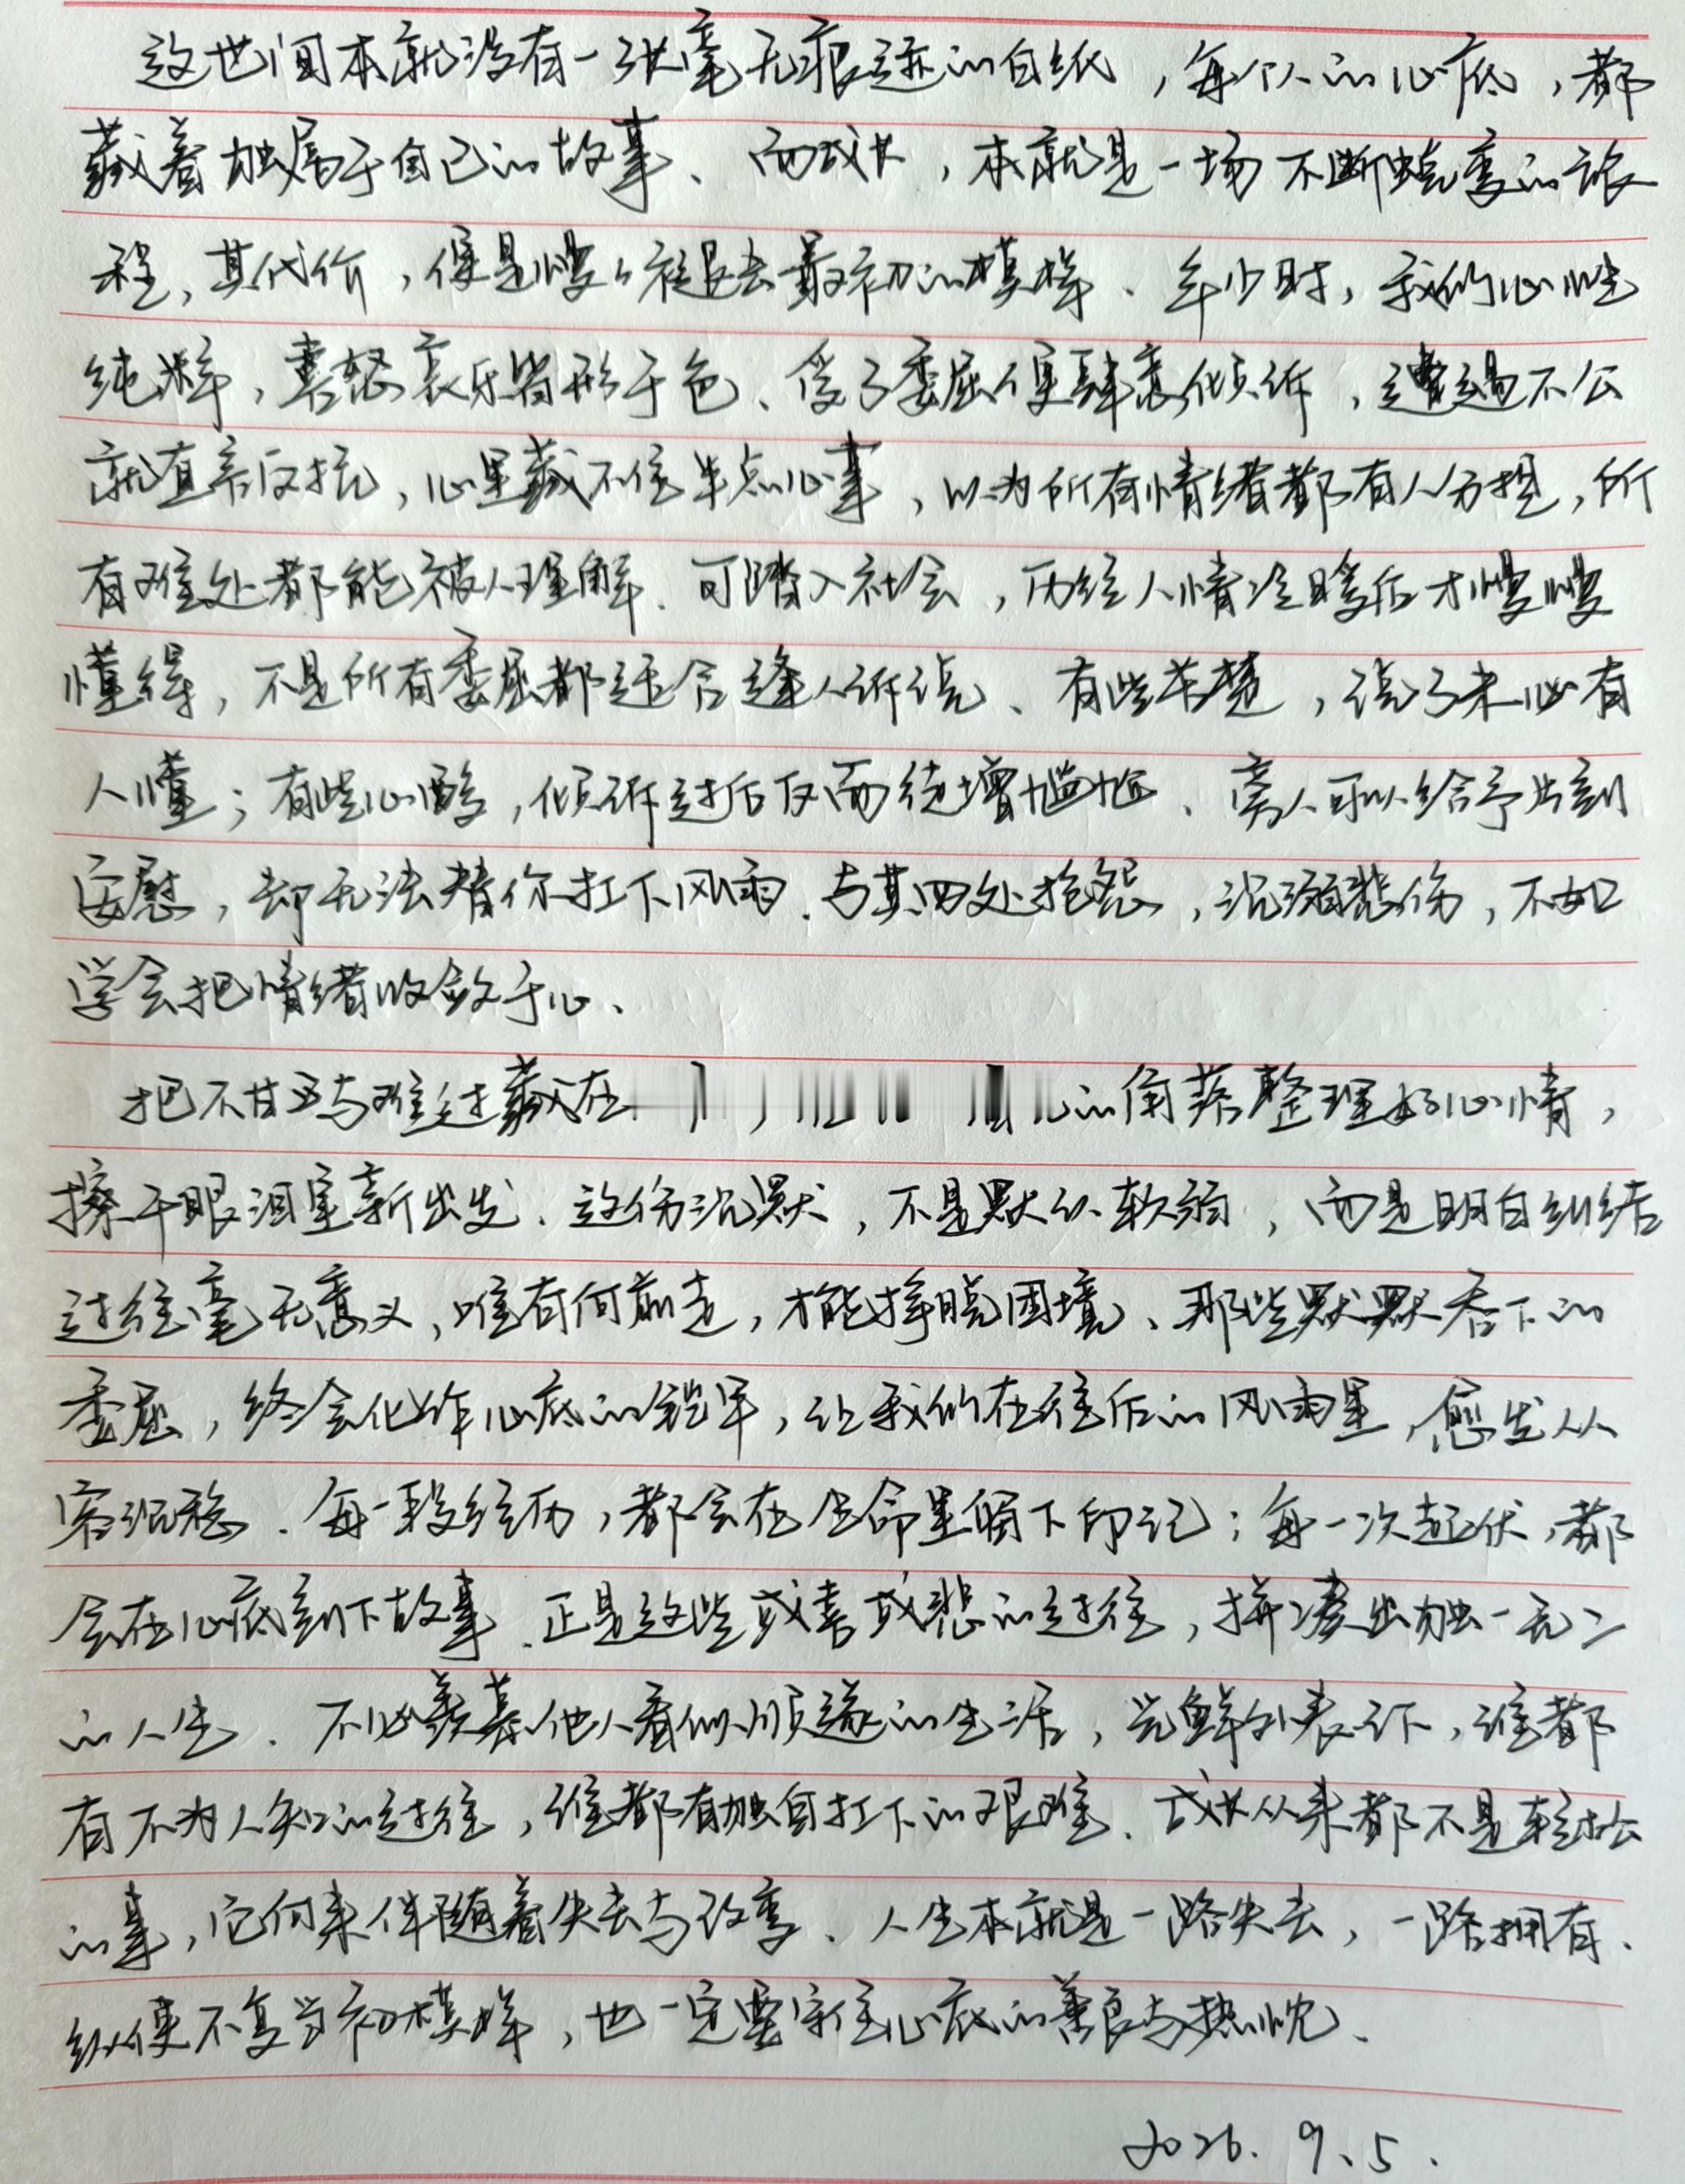 这世间本就没有一张毫无痕迹的白纸，每个人的心底，都
藏着独属于自己的故事、而成长，本就是一场不断蜕变的旅
程，其代价，便是慢慢褪去最初的模样、年少时，我们心性
纯粹，喜怒哀乐皆形于色、受了委屈便肆意倾诉，遭遇不公
就直言反抗，心里藏不住半点心事，以为所有情绪都有人分担，所
有难处都能被人理解、可踏入社会，历经人情冷暖后才慢慢
懂得，不是所有委屈都适合逢人诉说、有些苦楚，说了未必有
人懂；有些心酸，倾诉过后反而徒增尴尬、旁人可以给予片刻
安慰，却无法替你扛下风雨、与其四处抱怨，沉溺悲伤，不如
学会把情绪收敛于心、
把不甘与难过藏在的角落整理好心情，
擦干眼泪重新出发、这份沉默，不是默认软弱，而是明白纠结
过往毫无意义，唯有向前走，才能挣脱困境、那些默默吞下的
委屈，终会化作心底的铠甲，让我们在往后的风雨里，愈发从
容沉稳、每一段经历，都会在生命里留下印记；每一次起伏，都
会在心底刻下故事、正是这些或喜或悲的过往，拼凑出独一无二
的人生、不必羡慕他人看似顺遂的生活，光鲜外表下，谁都
有不为人知的过往，谁都有独自扛下的艰难、成长从来都不是轻松
的事，它向来伴随着失去与改变、人生本就是一路失去，一路拥有、
纵使不复当初模样，也一定要守住心底的善良与热忱、
2026.9.5.